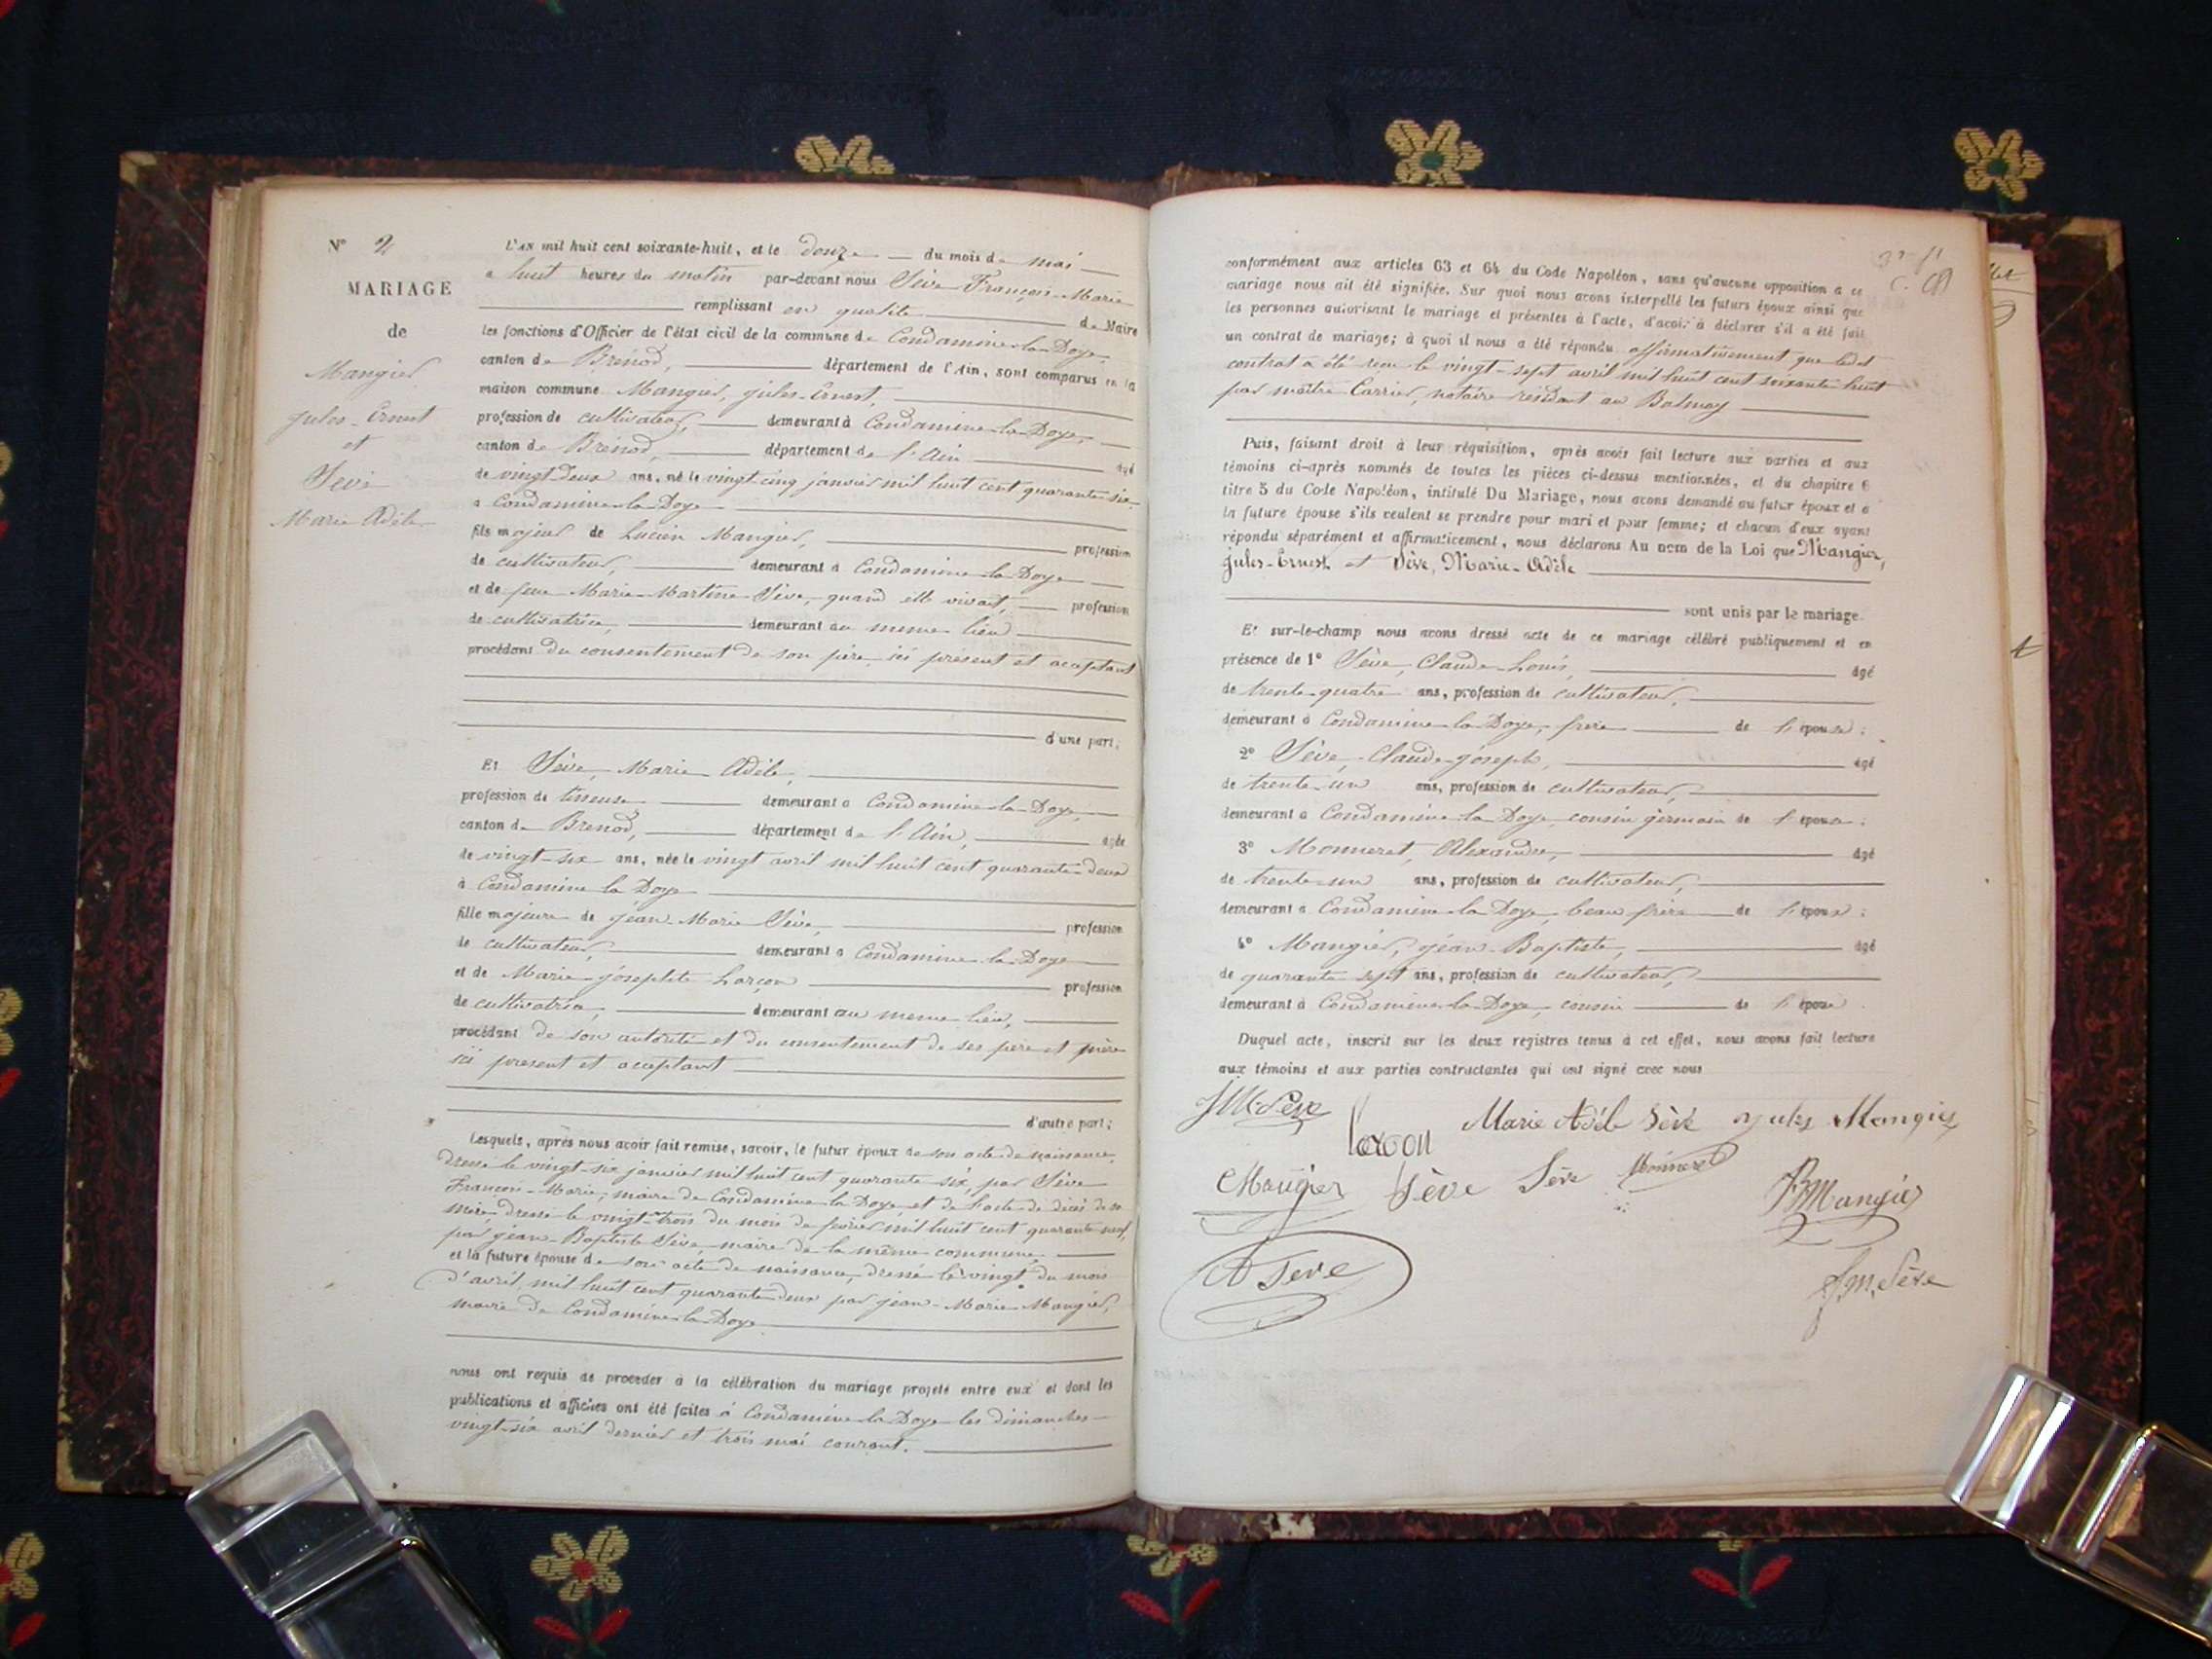 N° 2
MARIAGE
de
Mangier
Jules-Ernest
et
Sève
Marie Adèle
L'AN mil huit cent soixante-huit, et le douze du mois de mai
à huit heures du matin par-devant nous Sève François-Marie
remplissant en qualité de Maire
les fonctions d'Officier de l'état civil de la commune de Condamine-la-Doye,
canton de Brénod, département de l'Ain, sont comparus en la
maison commune Mangier, Jules-Ernest,
profession de cultivateur, demeurant à Condamine-la-Doye,
canton de Brénod, département de l'Ain âgé
de vingt-deux ans, né le vingt-cinq janvier mil huit cent quarante-six
à Condamine-la-Doye
fils majeur de Lucien Mangier, profession
de cultivateur, demeurant à Condamine-la-Doye
et de feue Marie-Martine Sève, quand elle vivait, profession
de cultivatrice, demeurant au même lieu
procédant du consentement de son père ici présent et acceptant
d'une part;
Et Sève, Marie Adèle,
profession de tisseuse demeurant à Condamine-la-Doye,
canton de Brénod, département de l'Ain, âgée
de vingt-six ans, née le vingt avril mil huit cent quarante-deux
à Condamine la Doye
fille majeure de Jean-Marie Sève, profession
de cultivateur, demeurant à Condamine-la-Doye
et de Marie-Josephte Larçon profession
de cultivatrice, demeurant au même lieu,
procédant de son autorité et du consentement de ses père et mère
ici present et acceptant
d'autre part;
Lesquels, après nous avoir fait remise, savoir, le futur époux de son acte de naissance,
dressé le vingt-six janvier mil huit cent quarante-six, par Sève
François-Marie, maire de Condamine-la-Doye, et de l'acte de décès de sa
mère, dressé le vingt-trois du mois de fevrier mil huit cent quarante-neuf,
par Jean-Baptiste Sève, maire de la même commune
et la future épouse de son acte de naissance, dressé le vingt du mois
d'avril mil huit cent quarante-deux par Jean-Marie Mangier,
maire de Condamine-la-Doye
nous ont requis de procéder à la célébration du mariage projeté entre eux et dont les
publications et affiches ont été faites à Condamine-la-Doye les dimanches
vingt-six avril dernier et trois mai courant.
conformément aux articles 63 et 64 du Code Napoléon, sans qu'aucune opposition à ce
mariage nous ait été signifiée. Sur quoi nous avons interpellé les futurs époux ainsi que
les personnes autorisant le mariage et présentes à l'acte, d'avoir à déclarer s'il a été fait
un contrat de mariage; à quoi il nous a été répondu affirmativement que ledit
contrat a été reçu le vingt-sept avril mil huit cent soixante huit
par maître Carrier, notaire résidant au Balmay
Puis, faisant droit à leur réquisition, après avoir fait lecture aux parties et aux
témoins ci-après nommés de toutes les pièces ci-dessus mentionnées, et du chapitre 6
titre 5 du Code Napoléon, intitulé Du Mariage, nous avons demandé au futur époux et à
la future épouse s'ils veulent se prendre pour mari et pour femme; et chacun d'eux ayant
répondu séparément et affirmativement, nous déclarons Au nom de la Loi que Mangier,
Jules-Ernest et Sève, Marie-Adèle
sont unis par le mariage.
Et sur-le-champ nous avons dressé acte de ce mariage célébré publiquement et en
présence de 1° Sève, Claude-Louis, âgé
de trente-quatre ans, profession de cultivateur,
demeurant à Condamine-la-Doye, frère de l'épouse;
2° Sève, Claude-Joseph, âgé
de trente-un ans, profession de cultivateur,
demeurant à Condamine-la-Doye, cousin germain de l'épouse;
3° Monneret, Alexandre, âgé
de trente-un ans, profession de cultivateur,
demeurant à Condamine-la-Doye, beau frère de l'époux;
4° Mangier, Jean-Baptiste, âgé
de quarante-sept ans, profession de cultivateur,
demeurant à Condamine-la-Doye, cousin de l'époux
Duquel acte, inscrit sur les deux registres tenus à cet effet, nous avons fait lecture
aux témoins et aux parties contractantes qui ont signé avec nous
JM Sève
Marie Adèle Sève Jules Mangier
Mangier Sève Sève Monneret
JB Mangier
Sève
f.m. Sève